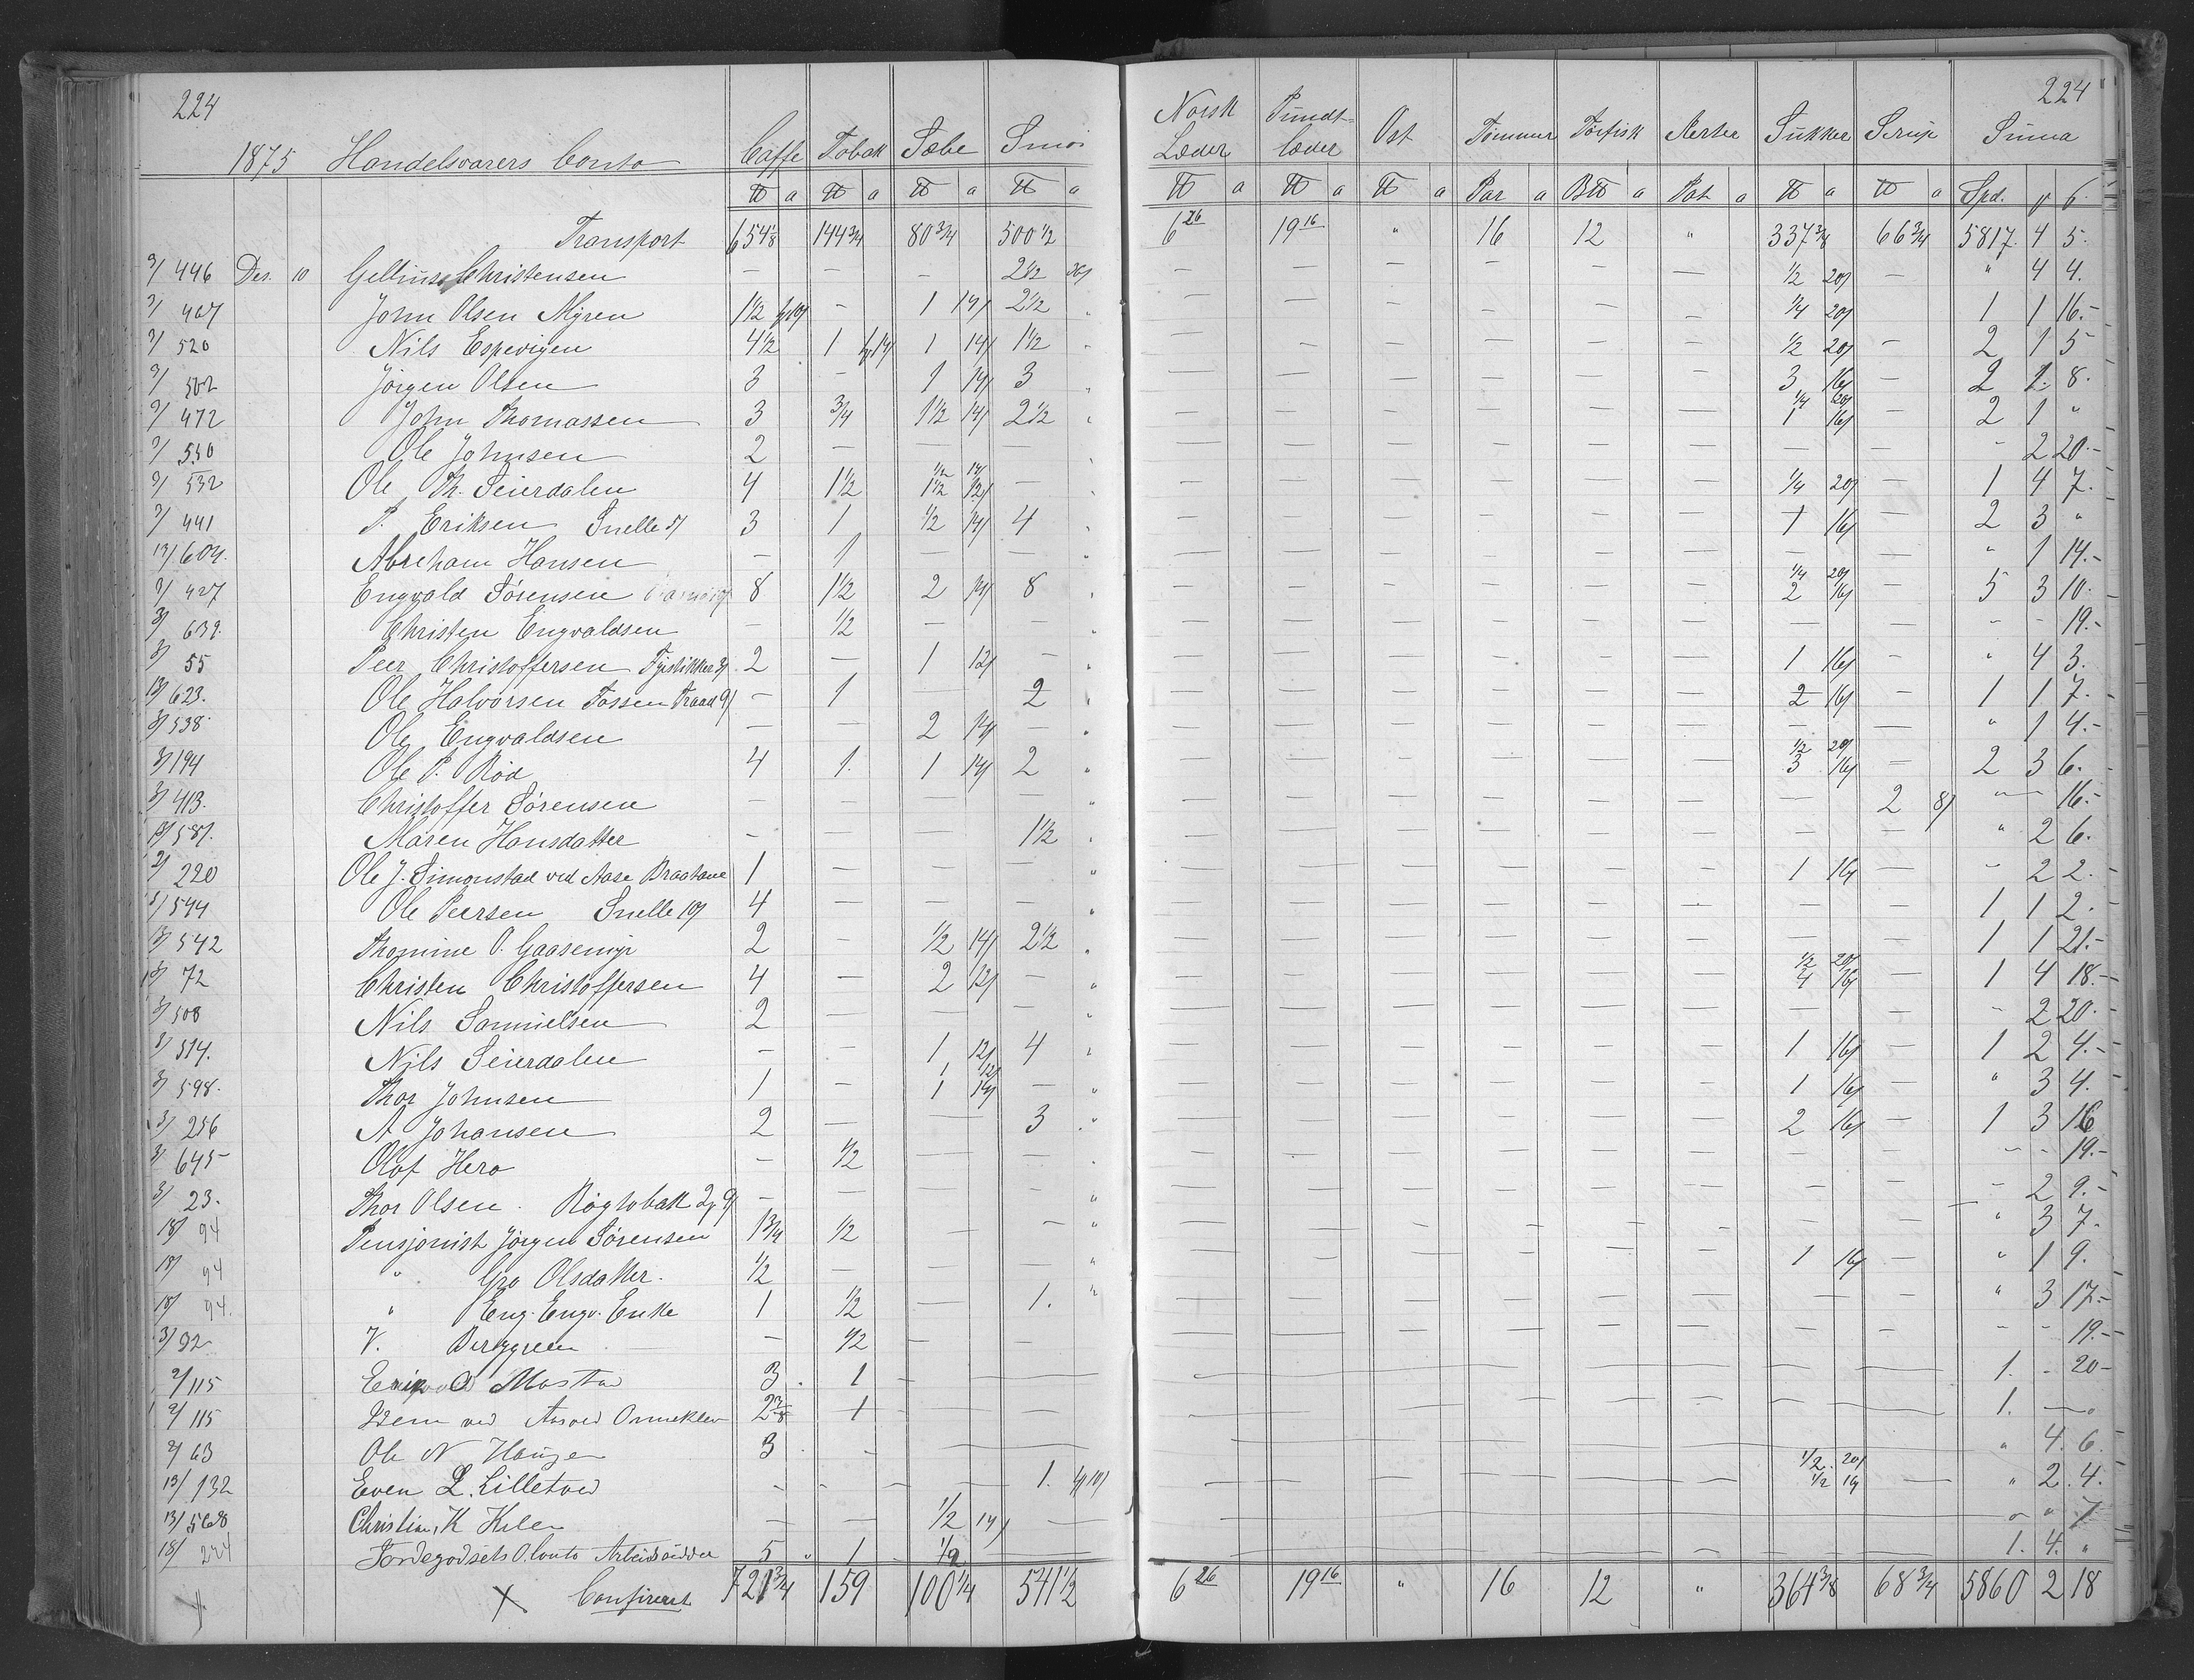 224 224
1875 Handelsvarers Conto Caffe Tobak Sæbe Smör Norsk Læder Pundt-læder Ost Tømmer Törfisk Aerter Sukker Sirup Suma
℔ a ℔ a ℔ a ℔ a ℔ a ℔ a ℔ a Par a B℔ a Pot a ℔ a ℔ a Spd. γ β.
Transport 654 1/8 144 3/4 80 3/4 500 1/2 6 26 19 16 " 16 12 " 337 3/8 66 3/4 5817. 4 5.
9/ 446 Des. 10 Gellius Christensen — — — 2 1/2 — — — — — — 1/2 20/ — " 4 4.
9/ 467 John Olsen Myren 1 1/2 — 1 14/ 2 1/2 " — — — — — — 1/4 20/ 1 1 16.-
9/ 520 Nils Espevigen 4 1/2 1 1 14/ 1 1/2 " — — — — — — 1/2 20/ — 2 1 5
9/ 502 Jörgen Olsen 3 — 1 14/ 3 " — — — — — — 3 16/ — 2 2. 8.
9/ 472 John Thomassen 3 3/4 1 1/2 14/ 2 1/2 " — — — — — — 1/4 20/ 1 16/ — 2 1 "
9/ 530 Ole Johnsen 2 — — — " — — — — — — — — - 2 20.-
9/ 532 Ole Th. Seierdalen 4 1 1/2 1/2 14/ 1 1/2 12/ — " — — — — — — 1/4 20/ — 1 4 7.-
9/ 441 P. Eriksen Snelle 5/ 3 1 1/2 14/ 4 " — — — — — — 1 16/ — 2 3 "
13/ 604. Abreham Hansen — 1 — — " — — — — — — — — " 1 14.-
9/ 427 Engvald Sörensen 8 1 1/2 2 14/ 8 " — — — — — — 1/4 20/ 2 16/ — 5 3 10.-
3/ 639. Christen Engvaldsen — 1/2 — — " — — — — — — — — - - 19.-
3/ 55 Peer Christoffersen Fyrstikker 3/ 2 — 1 12/ — " — — — — — — 1 16/ — " 4 3.
13/ 623. Ole Halvorsen Tossen Traad 9/ — 1 2 " — — — — — — 2 16/ — 1 1 7.-
3/ 538. Ole Engvaldsen — — 2 14/ — " — — — — — — — — " 1 4.-
3/ 194 Ole P. Röd 4 1. 1 14/ 2 " — — — — — — 1/2 20/ 3 16/ — 2 3 6.-
3/ 413. Christoffer Sörensen — — — — " — — — — — — — 2 8/ " — 16.-
13/ 587. Maren Hansdatter — — — 1 1/2 " — — — — — — — — " 2 6.
2/ 220 Ole J. Simonstad ved Aase Braatane 1 — — — " — — — — — — 1 16/ — - 2 2.-
3/ 544 Ole Peersen Snelle 10/ 4 — — — " — — — — — — — — 1 1 2.-
13/ 542 Thomine O. Gaasemyr 2 — 1/2 14/ 2 1/2 " — — — — — — — — 1 1 21.-
13/ 72 Christen Christoffersen 4 — 2 12/ — " — — — — — — 1/2 20/ 4 16/ — 1 4 18.-
3/ 508 Nils Samuelsen 2 — — — " — — — — — — — — - 2 20.-
3/ 514. Nils Seierdalen — — 1 12/ 4 " — — — — — — 1 16/ — 1 2 4.-
3/ 598. Thor Johnsen 1 — 1 12/ 1 14/ — " — — — — — — 1 16/ — " 3 4.
3/ 256 A Johansen 2 — — 3 " — — — — — — 2 16/ — 1 3 16
3/ 645 Olaf Hero — 1/2 — — " — — — — — — — — - - 19.-
3/ 23. Thor Olsen . Rögtobak — — — — " — — — — — — — — - 2 9.-
18/ 94 Pensjonist Jörgen Sörensen 1 3/4 1/2 — — " — — — — — — — — " 3 7.-
18/ 94 " Gro Olsdatter. 1/2 — — — " — — — — — — 1 16/ — " 1 9.
18/ 94. " Eng. Engv. Enke 1 1/2 — 1. " — — — — — — — — " 3 17.-
3/ 92 V. Berggreen — 1/2 — — — — — — — — — — - - 19.-
9/ 115 O Mostad 3 . 1 — — 1. - 20-
9/ 115 Idem ved Aasvei Ormeklev 2 7/8 1 1. — "
9/ 63 Ole N Hauge 3 . - " 4. 6.
13/ 132 Even L. Lilletved - - - - 1. — 1/2. 20/ 1/2 16/ — " 2. 4.
13/ 568 Christine K Kile — — 1/2 14/ — " " 7
18/ 224 Jordegodsets O. Conto Arbeidsudder 5 " 1 1/2 1. 4. "
X Confireret 721 3/4 159 100 1/4 541 1/2 6 26 19 16 " 16 12 " 364 3/8 68 3/4 5860 2 18